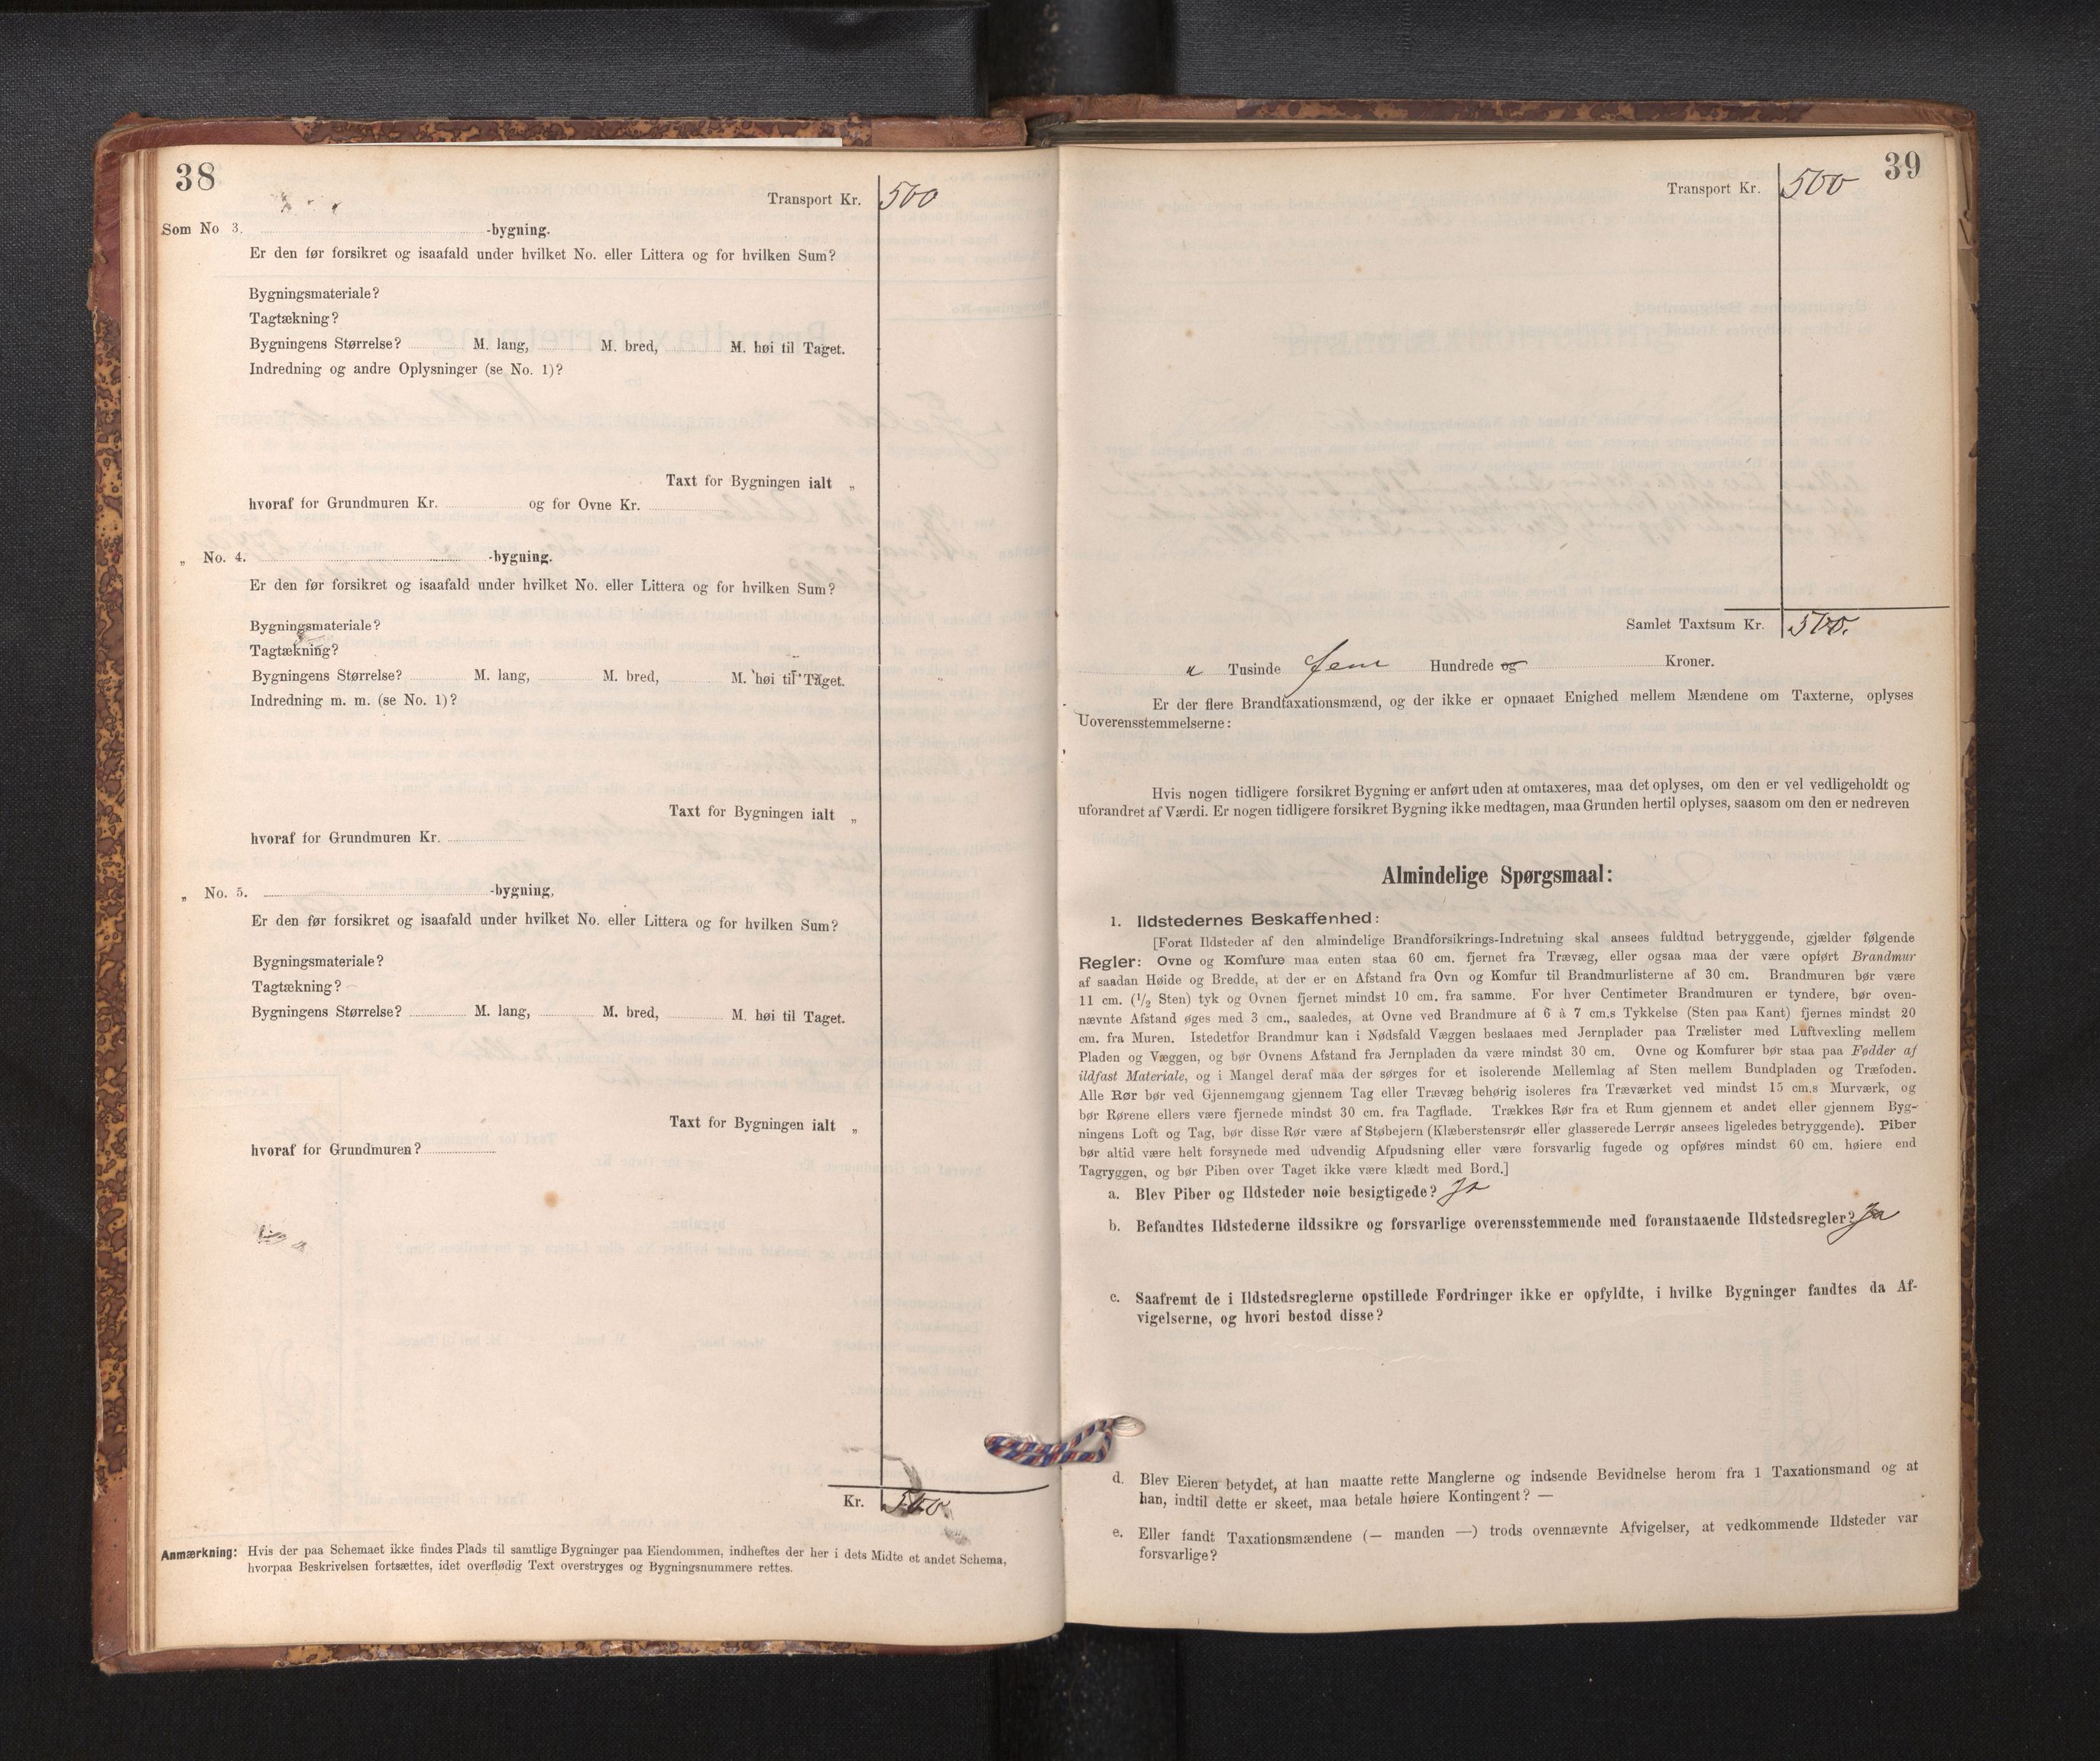 38
Transport Kr. 500
Som No 3. -bygning.
Er den før forsikret og isaafald under hvilket No. eller Littera og for hvilken Sum?
Bygningsmateriale?
Tagtækning?
Bygningens Størrelse? M. lang, M. bred, M. høi til Taget.
Indredning og andre Oplysninger (se No. 1)?
Taxt for Bygningen ialt „
hvoraf for Grundmuren Kr. og for Ovne Kr.
„ No. 4. -bygning.
Er den før forsikret og isaafald under hvilket No. eller Littera og for hvilken Sum?
Bygningsmateriale?
Tagtækning?
Bygningens Størrelse? M. lang, M. bred, M. høi til Taget.
Indredning m. m. (se No. 1)?
Taxt for Bygningen ialt „
hvoraf for Grundmuren Kr.
„ No. 5. -bygning,
Er den før forsikret og isaafald under hvilket No. eller Littera og for hvilken Sum?
Bygningsmateriale?
Tagtækning?
Bygningens Størrelse? M. lang, M. bred, M. høi til Taget.
Taxt for Bygningen ialt „
hvoraf for Grundmuren?
Kr. 500
Anmærkning: Hvis der paa Schemaet ikke findes Plads til samtlige Bygninger paa Eiendommen, indheftes der her i dets Midte et andet Schema,
hvorpaa Beskrivelsen fortsættes, idet overflødig Text overstryges og Bygningsnummere rettes.
39
Transport Kr. 500
Samlet Taxtsum Kr. 500.
„ Tusinde fem Hundrede og Kroner.
Er der flere Brandtaxationsmænd, og der ikke er opnaaet Enighed mellem Mændene om Taxterne, oplyses
Uoverensstemmelserne:
Hvis nogen tidligere forsikret Bygning er anført uden at omtaxeres, maa det oplyses, om den er vel vedligeholdt og
uforandret af Værdi. Er nogen tidligere forsikret Bygning ikke medtagen, maa Grunden hertil oplyses, saasom om den er nedreven
Almindelige Spørgsmaal:
1. Ildstedernes Beskaffenhed:
[Forat Ildsteder af den almindelige Brandforsikrings-Indretning skal ansees fuldtud betryggende, gjælder følgende
Regler: Ovne og Komfure maa enten staa 60 cm. fjernet fra Trævæg, eller ogsaa maa der være opført Brandmur
af saadan Høide og Bredde, at der er en Afstand fra Ovn og Komfur til Brandmurlisterne af 30 cm. Brandmuren bør være
11 cm. (1/2 Sten) tyk og Ovnen fjernet mindst 10 cm. fra samme. For hver Centimeter Brandmuren er tyndere, bør oven-
nævnte Afstand øges med 3 cm., saaledes, at Ovne ved Brandmure af 6 à 7 cm.s Tykkelse (Sten paa Kant) fjernes mindst 20
cm. fra Muren. Istedetfor Brandmur kan i Nødsfald Væggen beslaaes med Jernplader paa Trælister med Luftvexling mellem
Pladen og Væggen, og bør Ovnens Afstand fra Jernpladen da være mindst 30 cm. Ovne og Komfurer bør staa paa Fødder af
ildfast Materiale, og i Mangel deraf maa der sørges for et isolerende Mellemlag af Sten mellem Bundpladen og Træfoden.
Alle Rør bør ved Gjennemgang gjennem Tag eller Trævæg behørig isoleres fra Træværket ved mindst 15 cm.s Murværk, og
bør Rørene ellers være fjernede mindst 30 cm. fra Tagflade. Trækkes Rør fra et Rum gjennem et andet eller gjennem Byg-
ningens Loft og Tag, bør disse Rør være af Støbejern (Klæberstensrør eller glasserede Lerrør ansees ligeledes betryggende). Piber
bør altid være helt forsynede med udvendig Afpudsning eller være forsvarlig fugede og opføres mindst 60 cm. høiere end
Tagryggen, og bør Piben over Taget ikke være klædt med Bord.]
a. Blev Piber og Ildsteder nøie besigtigede? Ja
b. Befandtes Ildstederne ildssikre og forsvarlige overensstemmende med foranstaaende Ildstedsregler? Ja
c. Saafremt de i Ildstedsreglerne opstillede Fordringer ikke er opfyldte, i hvilke Bygninger fandtes da Af-
vigelserne, og hvori bestod disse?
d. Blev Eieren betydet, at han maatte rette Manglerne og indsende Bevidnelse herom fra 1 Taxationsmand og at
han, indtil dette er skeet, maa betale høiere Kontingent? —
e. Eller fandt Taxationsmændene (— manden —) trods ovennævnte Afvigelser, at vedkommende Ildsteder var
forsvarlige?